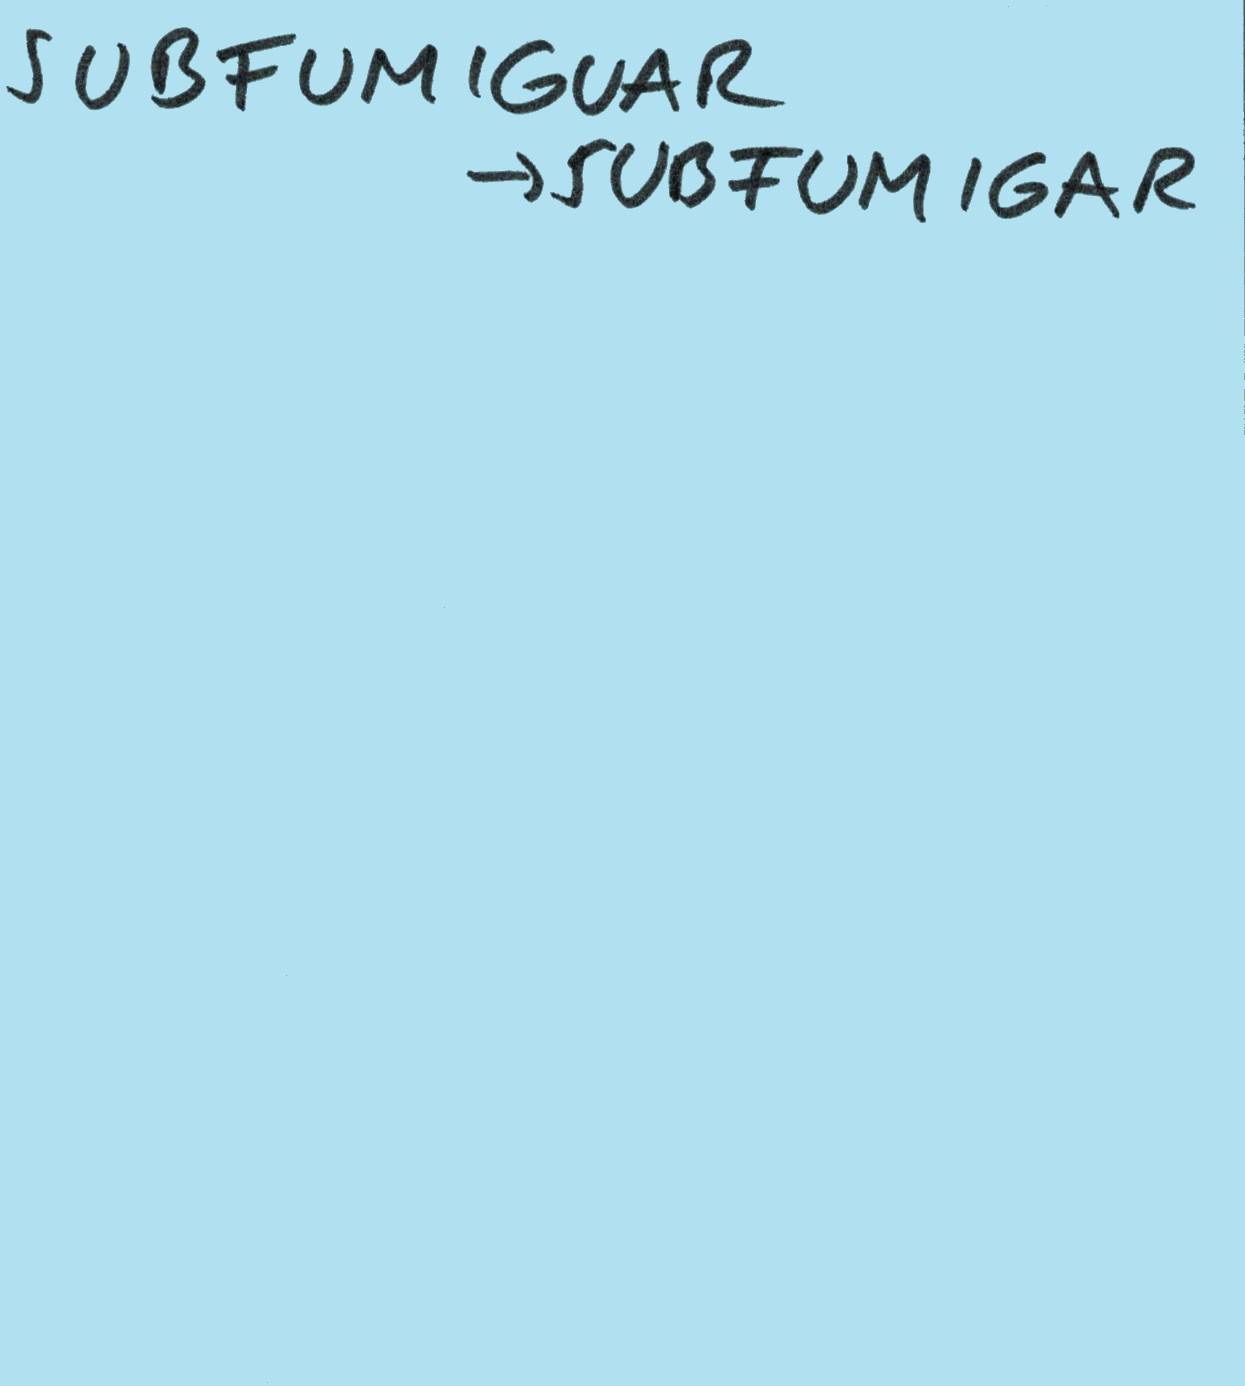 SUBFUMIGUAR
→SUBFUMIGAR